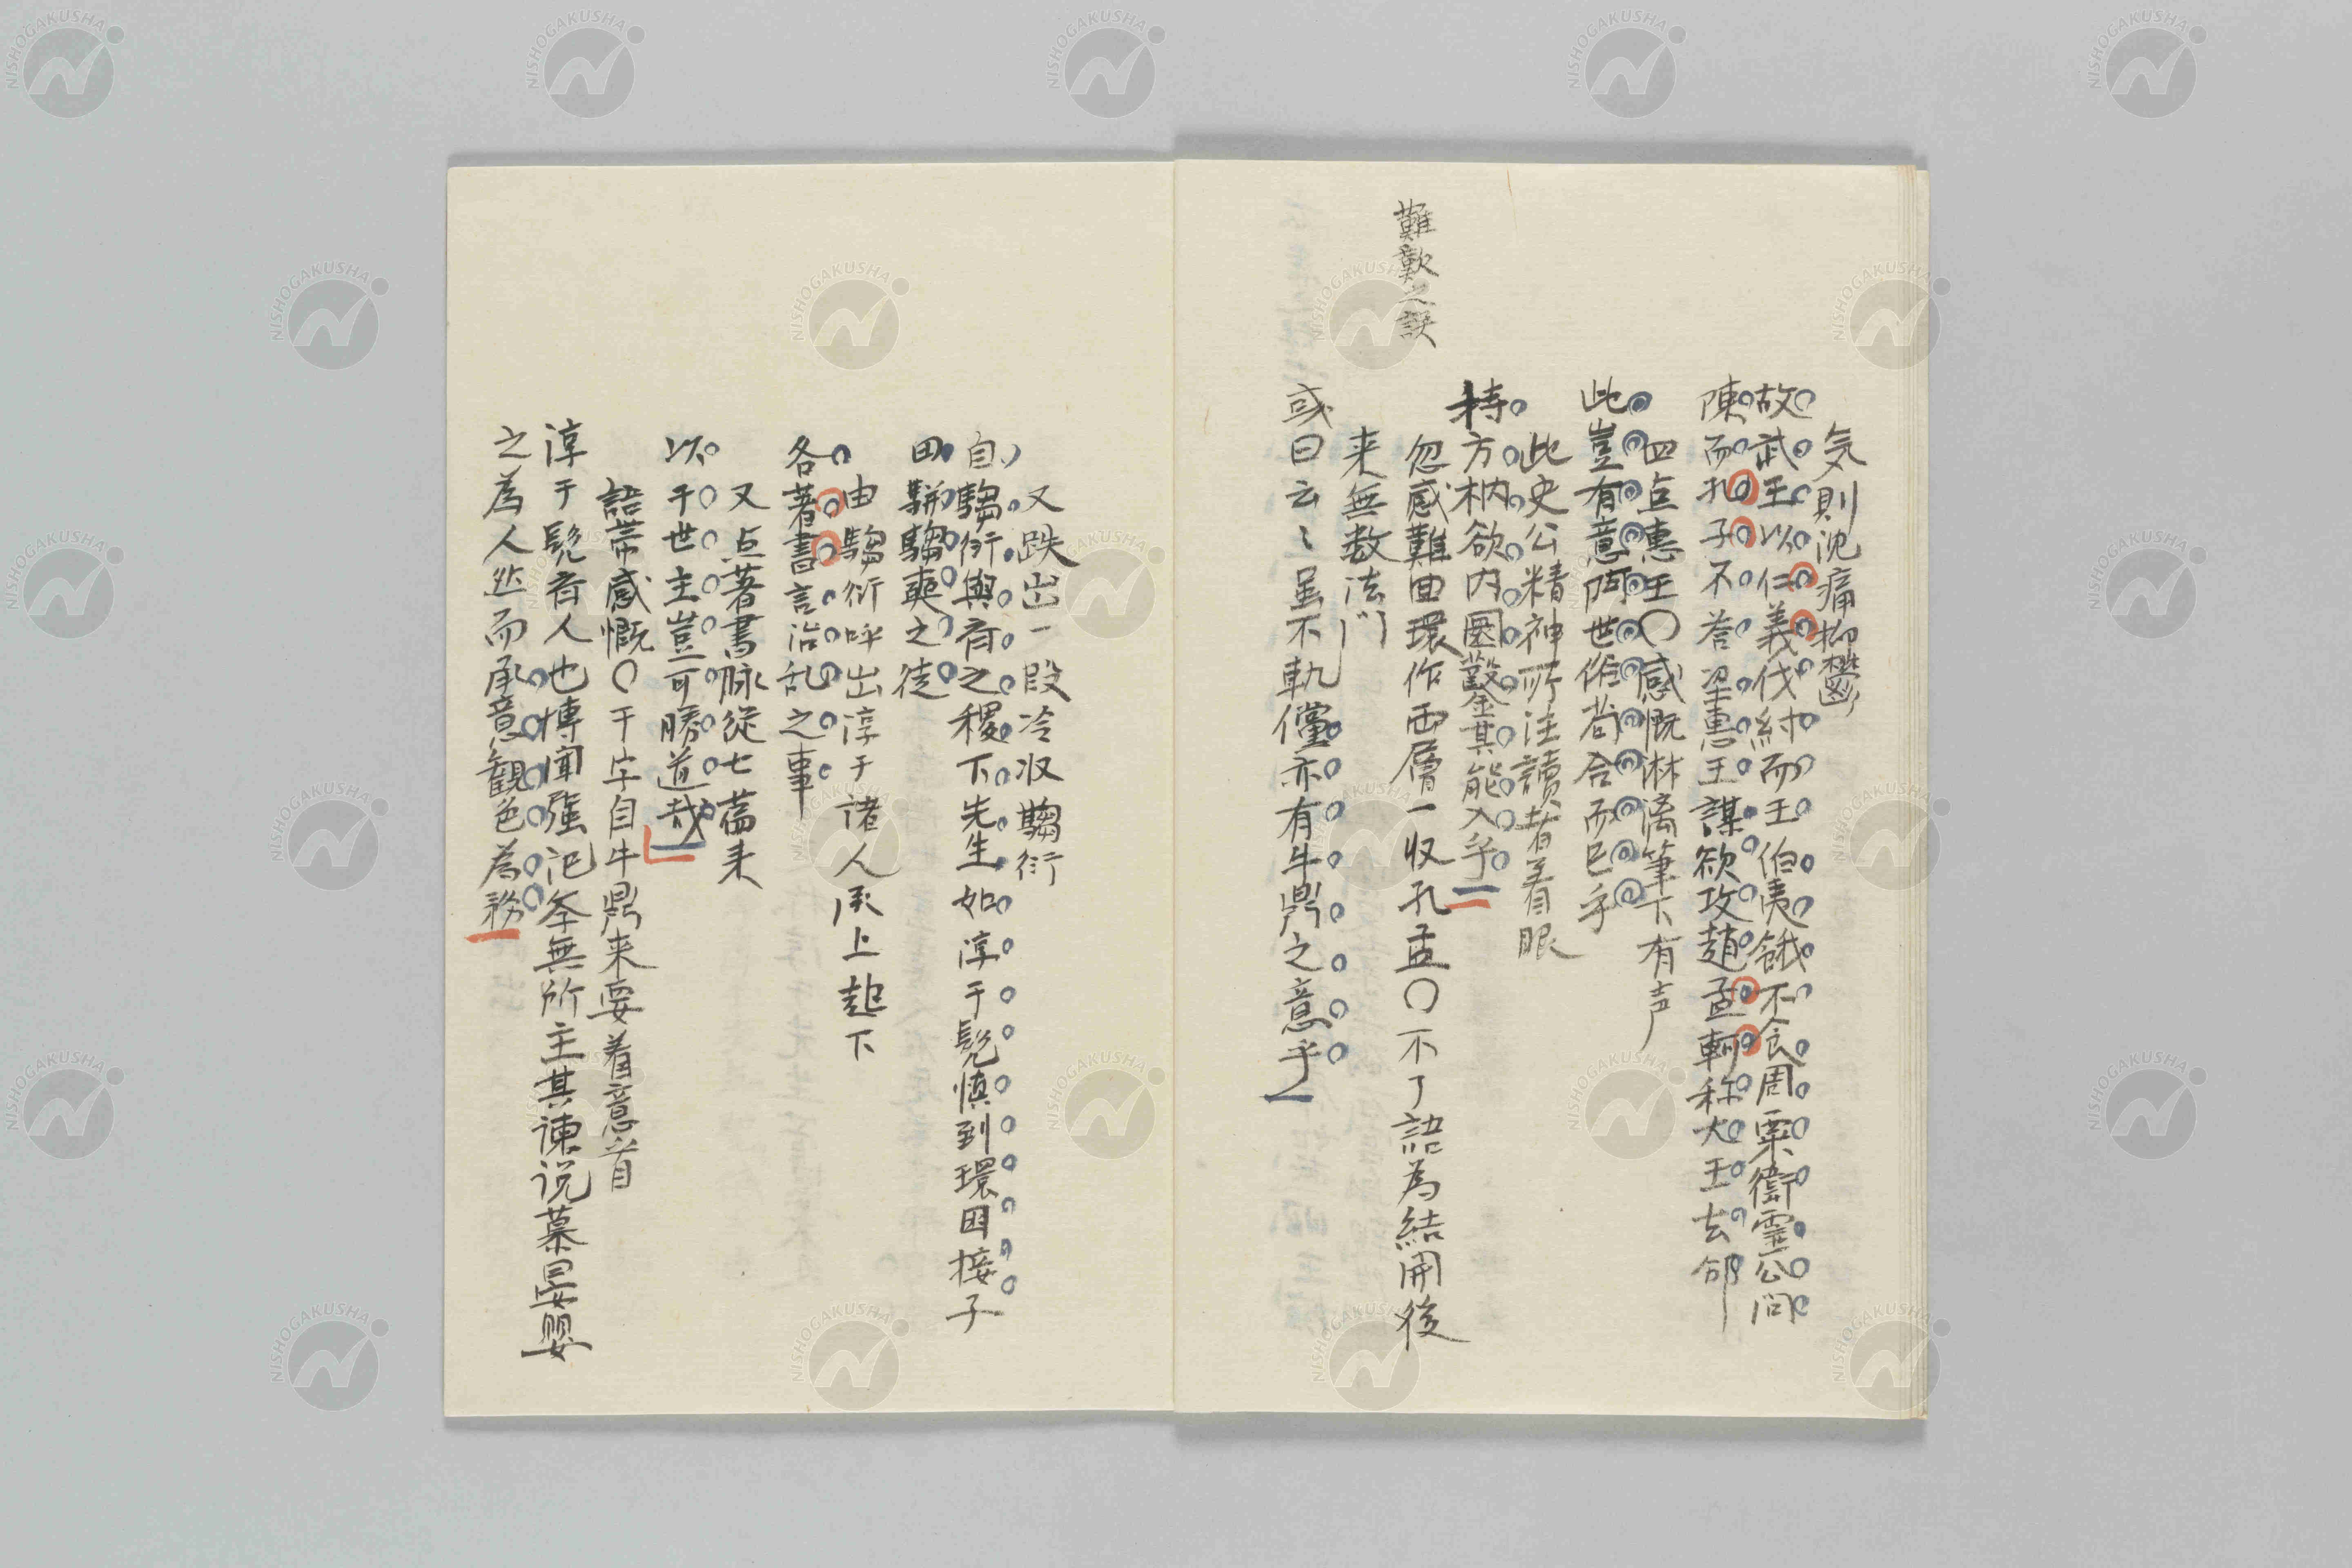 気則沈痛抑鬱
故武王以仁義伐紂而王伯夷餓不食周粟衛霊公問
陳而孔子不荅梁惠王謀欲攻趙孟軻称大王去邠
四点惠王〇感慨淋漓筆下有声
此豈有意阿世俗苟合而已乎
此史公精神所注讀者着眼
持方枘欲内圜鑿其能入乎
難歎之誤
忽感難曲環作両層一収孔孟〇不了語為結開後
来無数法門
或曰云〻虽不軌儻亦有牛鼎之意乎
又跌出一段冷収騶衍
自騶衍與斉之稷下先生如淳于髡慎到環困接子
田駢騶奭之徒
由騶衍呼出淳于諸人承上起下
各著書言治乱之事
又点著書脉従七篇来
以干世主豈可勝道哉
語帯感慨〇干字自牛鼎来要着意看
淳于髡斉人也博聞强記斈無所主其諌说慕晏嬰
之為人然而承意観色為務
NISHOGAKUSHA